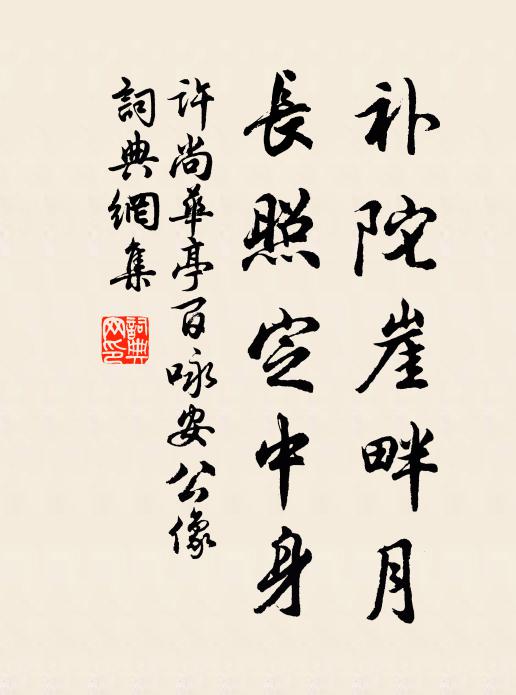 补陀崖畔月
長照定中身
许尚華亭百咏安公像
詞典網集
詞典
网印